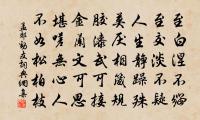 至白涅不緇
至交淡不疑
人生靜躁殊
莫厭相箴規
膠漆武可接
金蘭文可思
堪嗟無心人
不如松柏枝
孟郊勸友詞典網集